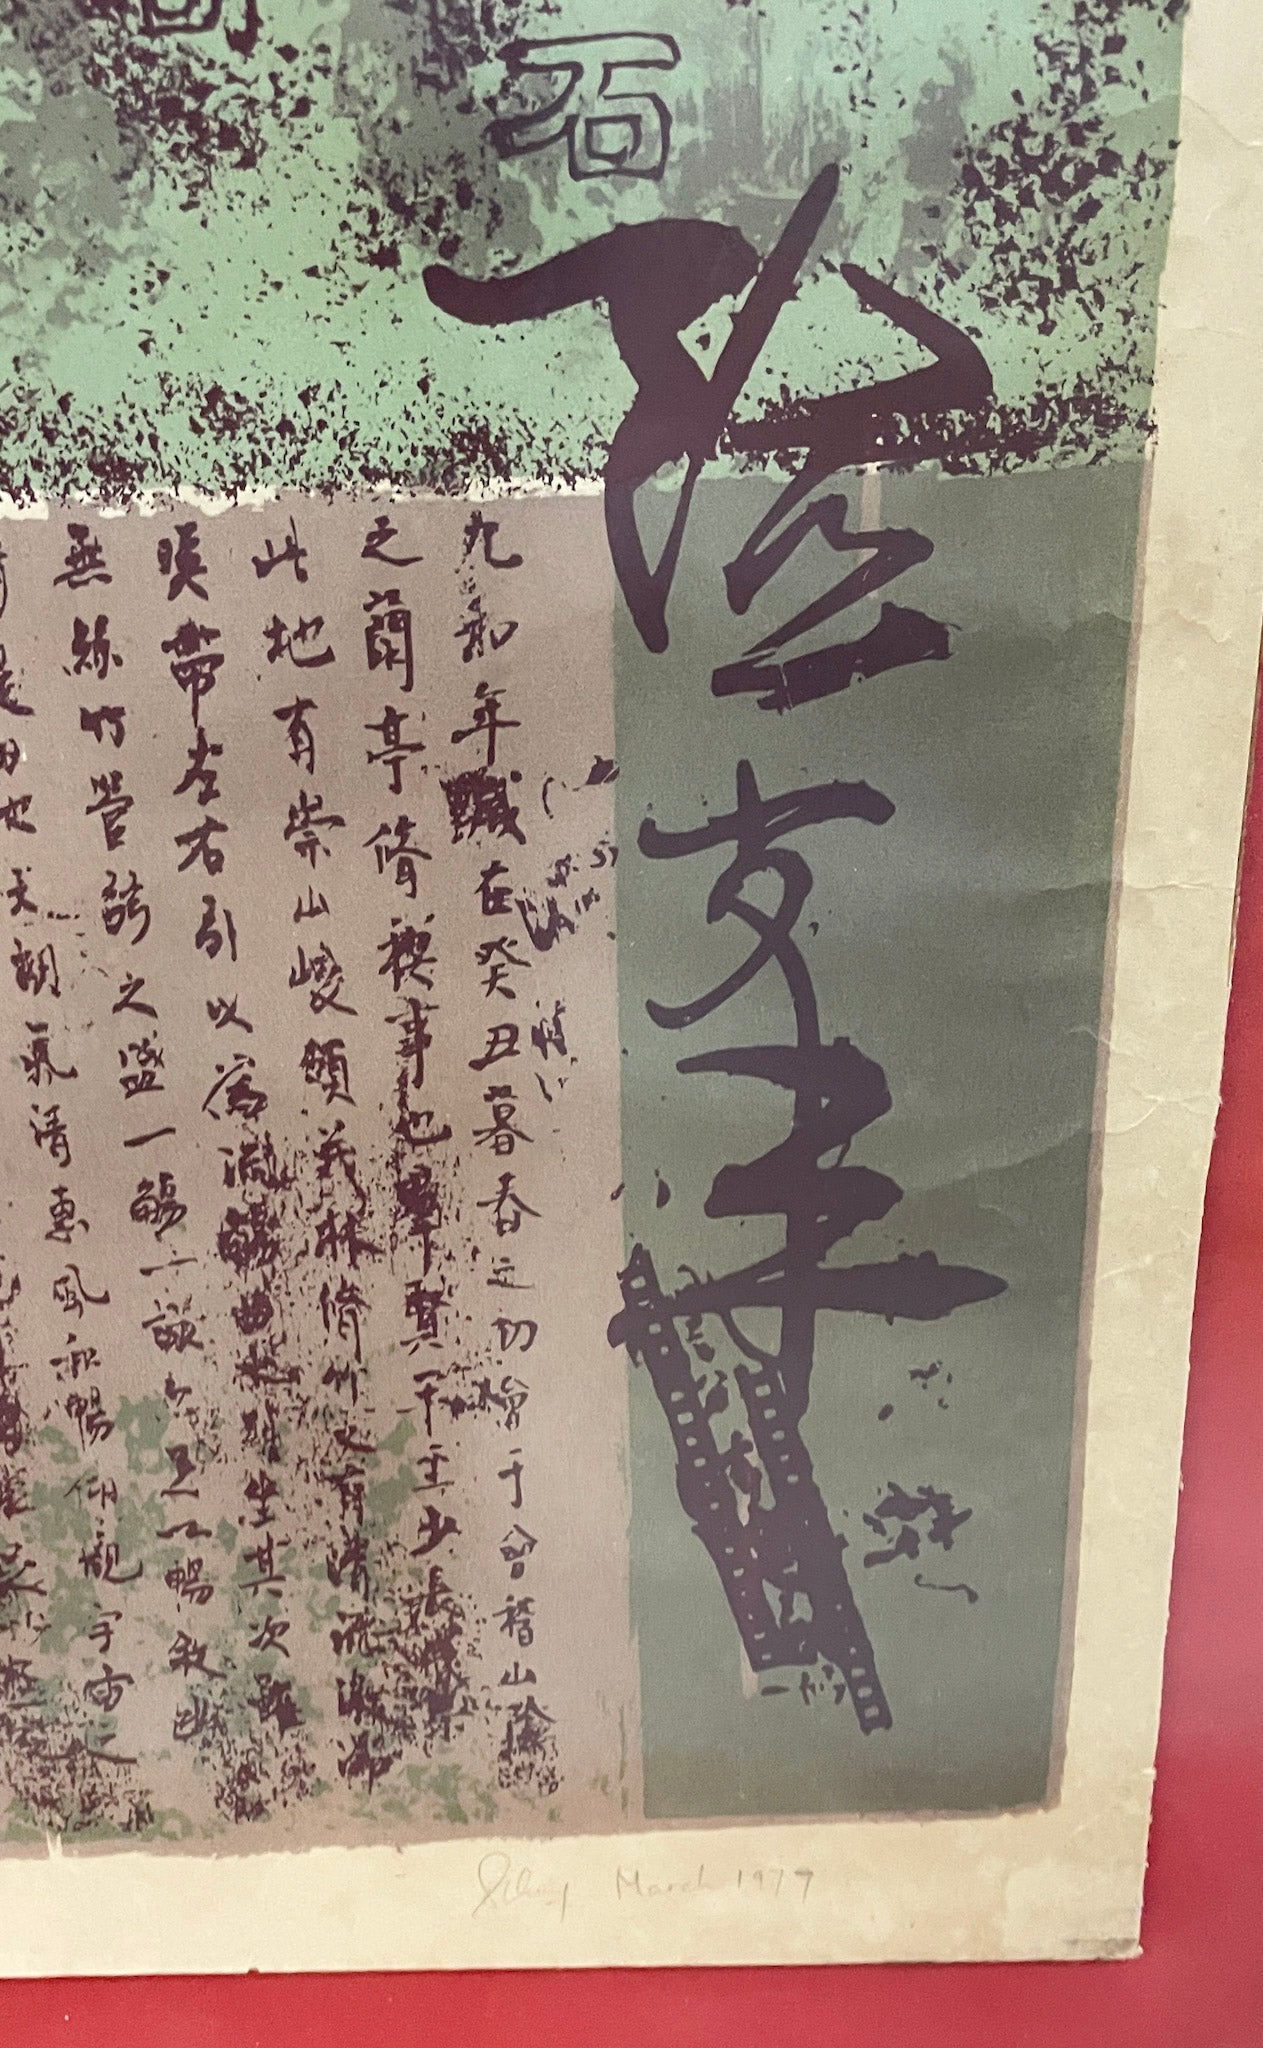 石
九和年歲在癸丑暮春之初會于會稽山陰
之蘭亭脩禊事也羣賢畢至少長咸集
此地有崇山峻領茂林脩竹又有清流激湍
暎帶左右引以為流觴曲水列坐其次雖
無絲竹管弦之盛一觴一詠亦足以暢敘幽
是日也天朗氣清惠風和暢仰觀宇宙之
March 1977